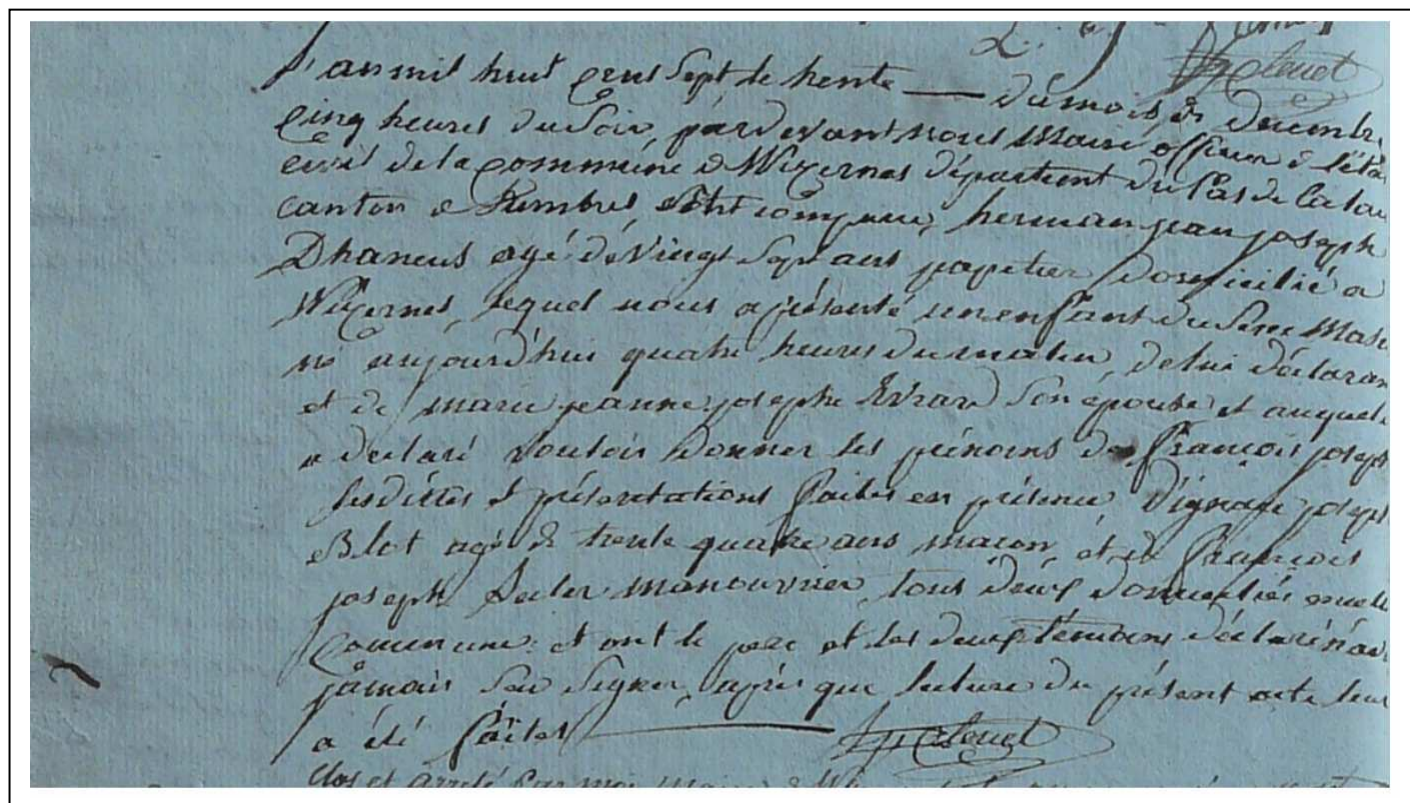 L'an mil huit cent Sept le trente — du mois de Decembre
Cinq heures du Soir, pardevant nous Maire officier de l'éta
civil de la commune de Wizernes département du Pas de Calais
canton de Lumbres est comparu, herman jean joseph
Dhaneus agé de vingt Sept ans papetier domicilié a
Wizernes, lequel nous a présenté un enfant du Sexe Masc
né aujourd'hui quatre heures du matin, de lui déclaran
et de marie jeanne josephe Evrard Son épouse et auquel
a declaré vouloir donner les prénoms de François joseph
lesdittes présentations faites en présence d'ignace joseph
Blot agé de trente quatre ans macon, et de François
joseph manouvrier, tous deux domiciliés
Commune: et ont le pere et les deux témoins déclaré n'avoir
jamais Seu Signer, après que lecture du présent acte leur
a été faites
Clos et arreté par moi maire